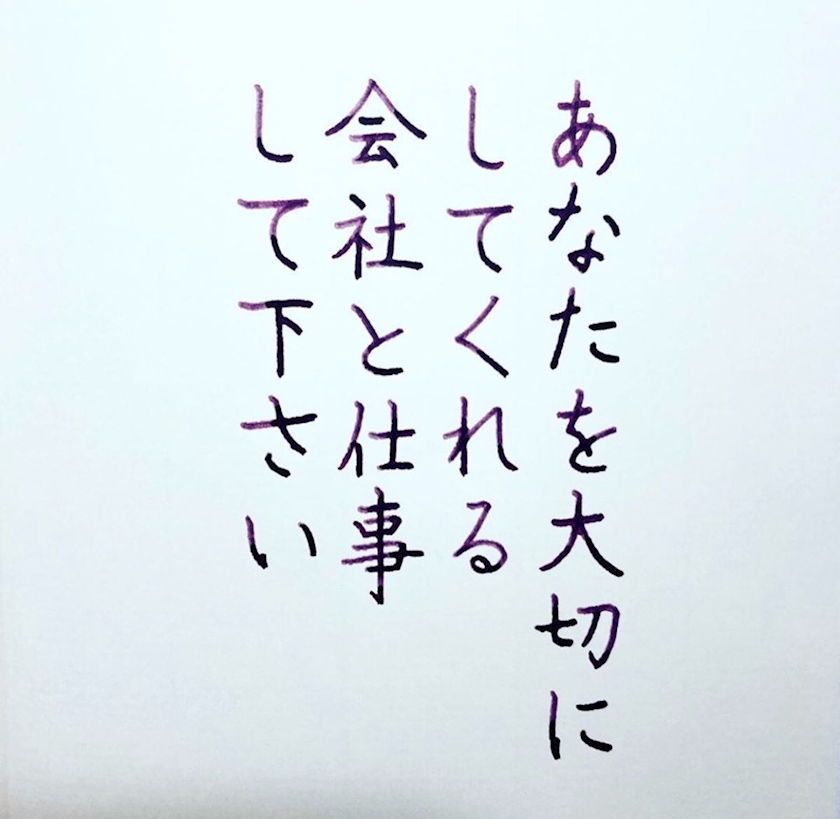 あなたを大切に
してくれる
会社と仕事
して下さい